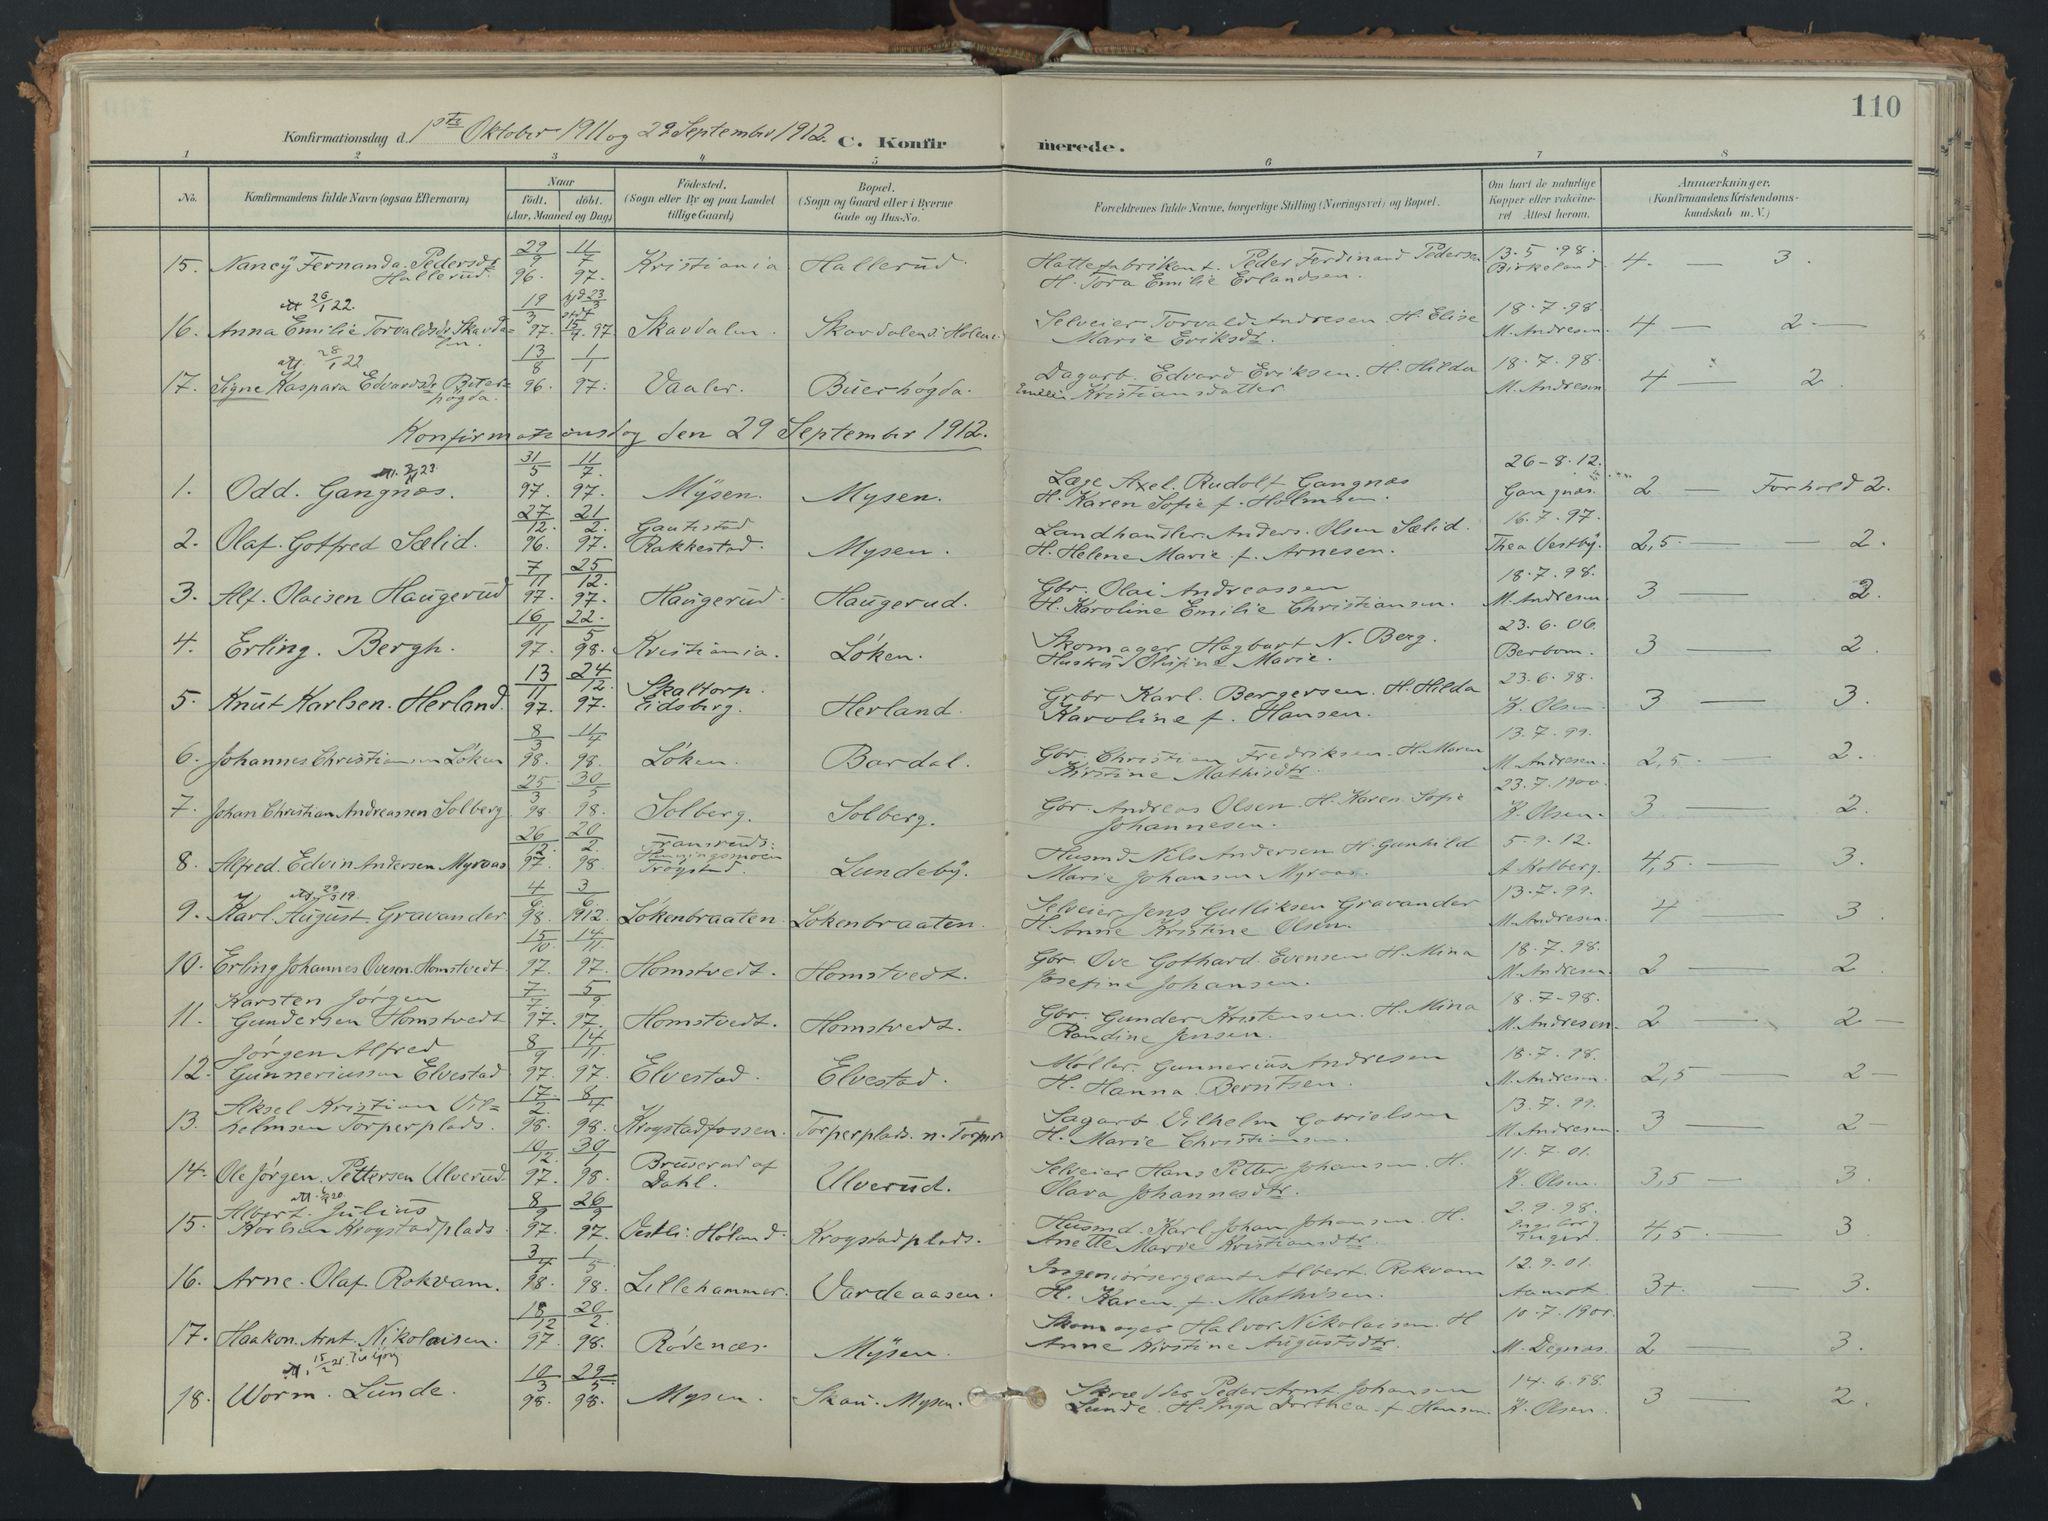 110
Konfirmationsdag d. 1ste Oktober 1911 og 29 September 1912. C. Konfirmerede.
1 2 3 4 5 6 7 8
No. Konfirmandens fulde Navn (ogsaa Efternavn) Naar Födt. döbt. (Aar, Maaned og Dag) Födested. (Sogn eller By og paa Landet tillige Gaard) Bopæl. (Sogn og Gaard eller i Byerne Gade og Hus-No. Forældrenes fulde Navne, borgerlige Stilling (Næringsvei) og Bopæl. Om havt de naturlige Kopper eller vaccineret Attest herom. Anmærkninger. (Konfirmandens Kristendomskundskab m. V.)
15. Nancy Fernanda Pedersdt Hallerud. 29/9 96. 11/7 97. Kristiania Hallerud Hattefabrikant Peder Ferdinand Pedersen H. Tora Emilie Erlandsen. 13.5.98. Birkeland 4. — 3.
att 26/1 22.
16. Anna Emilie Torvaldsdt Skavdalen. 19/3 97. hjd 23/3 97 Skavdalen. Skavdalen i Holene Selveier Torvald Andresen H. Elise Marie Eriksdt. 18.7.98. M. Andresen 4 — 2 —
att. 28/1 22
17. Signe Kaspara Edvardsdt Buerhøgda. 13/8 96. 1/1 97. Vaaler. Buerhøgda. Dagarb. Edvard Eriksen. H. Hilda Emilie Kristiansdatter. 18.7.98. M. Andresen 4 — 2.
Konfirmationsdag den 29 September 1912.
1. Odd. Gangnæs. 31/5 97. 11/7 97. Mysen. Mysen. Læge Axel Rudolf Gangnæs H. Karen Sofie f. Holmsen. 26-8.12. Gangnæs. 2 — Forhold 2.
2. Olaf Gotfred Sælid. 27/12 96. 21/2 97. Gautestad Rakkestad. Mysen. Landhandler Anders Olsen Sælid. H. Helene Marie f. Arnesen. 16.7.97. Thea Vestby. 2,5 — 2.
3. Alf. Olaisen Haugerud 7/11 97. 25/12 97. Haugerud. Haugerud. Gbr. Olai Andreassen H. Karoline Emilie Christiansen. 18.7.98. M. Andresen 3 — 2.
4. Erling. Bergh. 16/11 97. 22/5 98. Kristiania. Löken. Skomager Hagbart N. Berg. Hustru Marie. 23.6.06. Berbom. 3 — 2.
5. Knut Karlsen. Herland. 13/11 97. 24/12 97. Skaltorp. Eidsberg. Herland. Grbr Karl Bergersen. H. Hilda Karoline f. Hansen. 23.6.98. K. Olsen 3 — 3.
6. Johannes Christiansen Löken 8/3 98. 11/4 98. Löken. Bardal. Gbr. Christian Fredriksen. H. Maren Kirstine Mathisdtr. 13.7.99. M. Andresen. 2,5 — 2.
7. Johan Christian Andreassen Solberg. 25/3 98. 30/5 98. Solberg. Solberg. Gbr. Andreas Olsen. H. Karen Sofie Johannesen. 23.7.1900 K. Olsen. 3 — 2.
8. Alfred Edvin Andersen Myraas 26/12 97. 20/2 98. Fransruds: Henningsmoen Trøgstad. Lundeby. Husmd Nils Andersen H. Gunhild Marie Johansen Myraas. 5.9.12. A. Kolberg. 4,5 — 3.
9. Karl August Gravander 4/6 98. 3/6 1912. Lökenbraaten. Lökenbraaten. Selveier Jens Gulliksen Gravander H. Anne Kristine Olsen. 13.7.99. M. Andresen. 4 — 3.
10. Erling Johannes Ovesen Homstvedt. 15/10 97. 14/11 97. Homstvedt. Homstvedt. Gbr. Ove Gothard Evensen H. Mina Josefine Johansen. 18.7.98. M. Andresen 2 — 2.
11. Karsten Jørgen Gundersen Homstvedt 7/7 97. 5/9 97. Homstvedt. Homstvedt. Gbr. Gunder Kristensen. H. Mina Randine Jensen. 18.7-98. M. Andresen. 2 — 2 —
12. Jørgen Alfred Gunneriussen Elvestad 8/9 97. 14/11 97. Elvestad. Elvestad. Møller. Gunnerius Andresen H. Hanna Berntsen. 18.7.98. M. Andresen. 2,5 — 2 —
13. Aksel Kristian Vilhelmsen Torperplads. 17/2 98. 8/4 98. Krogstadfossen. Torperplads. n. Torper Sagarb Vilhelm Gabrielsen H. Marie Christiansen 13.7.99. M. Andresen. 3 — 2 —
14. Ole Jørgen Pettersen Ulverud. 10/12 97. 30/1 98. Bruserud af Dahl. Ulverud. Selveier Hans Petter Johansen. H. Olava Johannesdtr. 11.7.01. K. Olsen. 3,5 — 3.
15. Albert Julius Karlsen Krogstadplads. 8/9 97. 26/9 97. Vestli. Høland. Krogstadplads. Husmd. Karl Johan Johansen. H. Anette Marie Kristiansdtr. 2.9.98. Ingeborg 4,5 — 3
16. Arne. Olaf Rokvam. 3/4 98. 1/5 98. Lillehammer. Vardeaasen. Ingeniørsergeant Albert Rokvam H. Karen f. Mathisen. 12.9.01. Aamot. 3+. — 3.
17. Haakon Arnt Nikolaisen. 18/12 97. 20/2 98. Rødenæs. Mysen. Skomager Halvor Nikolaisen. H Anne Kirstine Augustsdtr. 10.7.1900. M. Degnæs. 2 — 3.
18. Worm. Lunde. 10/3 98. 29/5 98. Mysen. Skau. Mysen. Skrædder Peder Arnt Johansen Lunde. H. Inga Dorthea f. Hansen. 14.6.98. K. Olsen. 3 — 2.